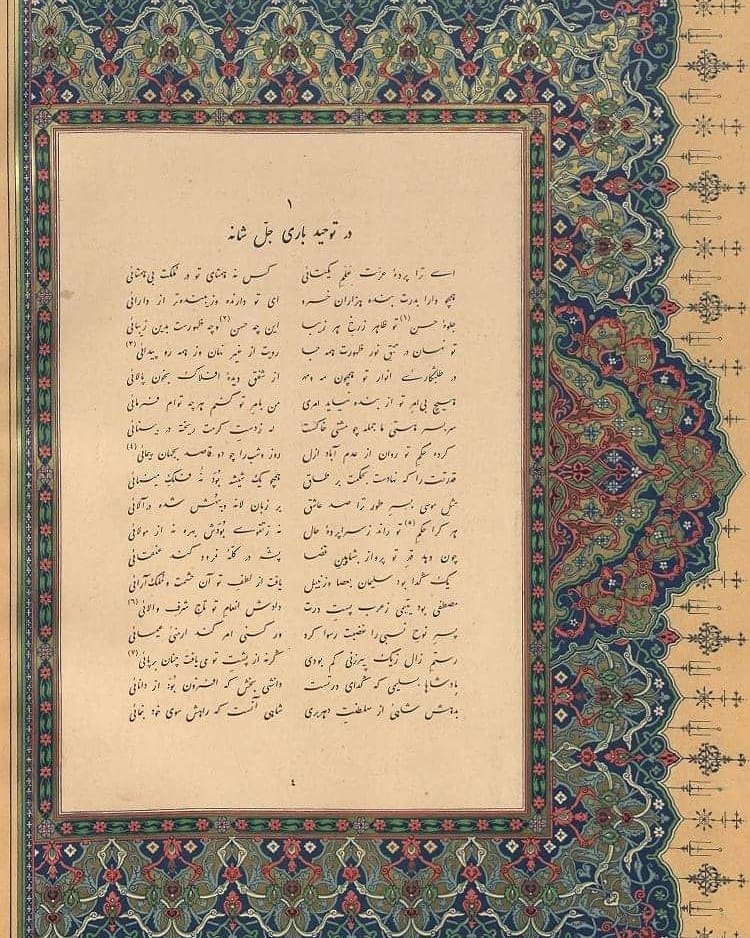 ۱
در توحید باری جلّ شانه
ای ترا پردهٔ عزت علم یکتائی کس نه همتای تو در مملکت بی همتائی
همچو دارا بدرت بنده هزاران خسرو ای تو دارنده وزیبنده‌تر از دارائی
جلوهٔ حسن (۱) تو ظاهر زرخ هر زیبا این چه حسن (۲) وچه ظهورست بدین زیبائی
تو نهان در تتق نور ظهورت همه جا رویت از غیر نهان وز همه رو پیدائی (۳)
در طلبگارئ انوار تو همچون مه ومهر از شفق دیدهٔ افلاک بخون پالائی
هیچ بی امر تو از بنده نیاید امری من بامر تو کنم هرچه توام فرمائی
سربسر هستی ما جمله چو مشتی خاکست که زدست کرمت ریخته در
کرده حکم تو روان از عدم آباد ازل روز وشب را چو دو قاصد بجهان پیمائی (۴)
قدرتت را که نهادست بحکمت بر طاق همچو یک شیشه بود نه فلک مینائی
مثل موسی بسر طور ترا صد عاشق بر زبان شده
هر کرا حکم (٥) تو راند زسراپردهٔ حال نه زتقوی بودش بهره نه از مولائی
چون دهد قدر تو پرواز بشاهین قضا پشه در کلهٔ کند عنقائی
یک گدا بود سلیمان بعصا وزنبیل یافت از لطف تو آن حشمت وملک آرائی
مصطفی بود یتیمی زعرب پست درت دادش انعام تو تاج شرف والائی (٦)
پسر نوح نبی را غضبت رسوا کرد امر کند عیسائی
رستم زال زیک پیرزنی کم بودی گرنه از پشت توی یافت چنان برنائی (۷)
پادشاها بسلیمی که گدای درتست دانشی بخش که افزون بود از دانائی
بدهش شاهئ از سلطنت دهر بری شاهی آنست که راهش سوی خود بنمائی
٤